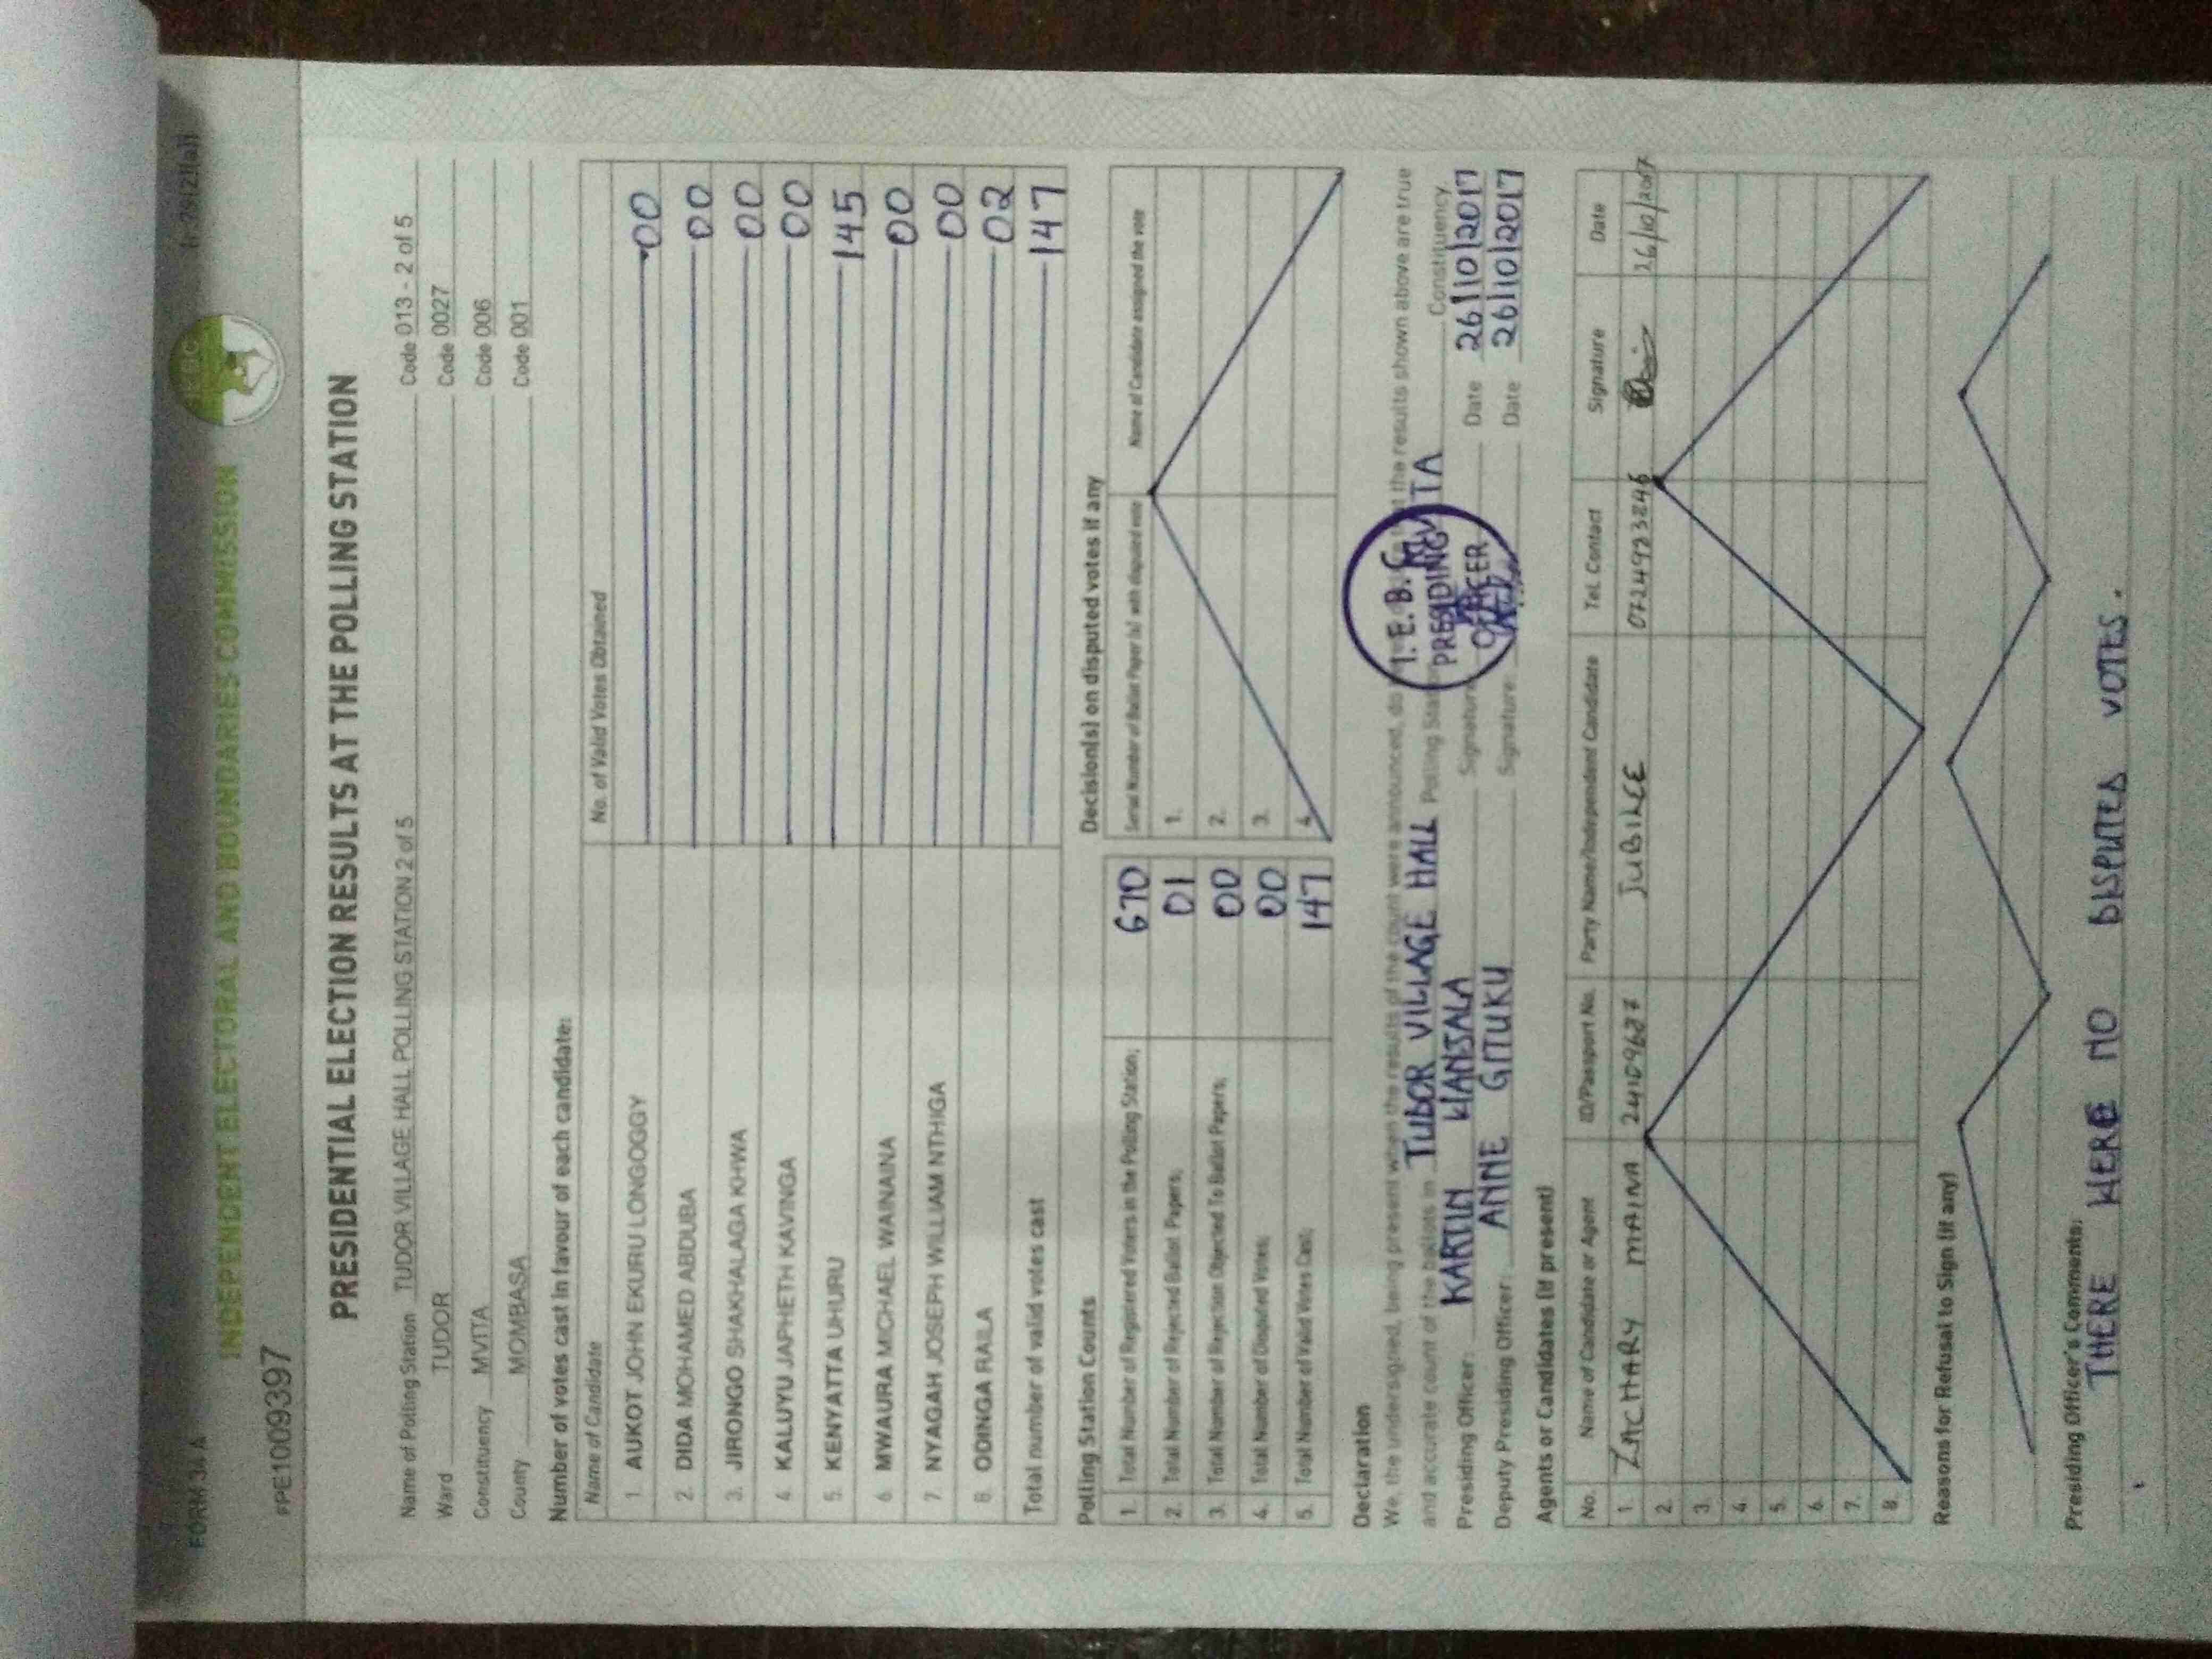 FORM 34 A
INDEPENDENT ELECTORAL AND BOUNDARIES COMMISSION
#PE1009397
PRESIDENTIAL ELECTION RESULTS AT THE POLLING STATION
Name of Polling Station TUDOR VILLAGE HALL POLLING STATION 2 of 5 Code 013 - 2 of 5
Ward TUDOR Code 0027
Constituency MVITA Code 006
County MOMBASA Code 001
Number of votes cast in favour of each candidate:
Name of Candidate No. of Valid Votes Obtained
1. AUKOT JOHN EKURU LONGOGGY 00
2. DIDA MOHAMED ABDUBA 00
3. JIRONGO SHAKHALAGA KHWA 00
4. KALUYU JAPHETH KAVINGA 00
5. KENYATTA UHURU 145
6. MWAURA MICHAEL WAINAINA 00
7. NYAGAH JOSEPH WILLIAM NTHIGA 00
8. ODINGA RAILA 02
Total number of valid votes cast 147
Polling Station Counts
1. Total Number of Registered Voters in the Polling Station; 670
2. Total Number of Rejected Ballot Papers; 01
3. Total Number of Rejection Objected To Ballot Papers; 00
4. Total Number of Disputed Votes; 00
5. Total Number of Valid Votes Cast; 147
Decision(s) on disputed votes if any
Serial Number of Ballot Paper (s) with disputed vote Name of Candidate assigned the vote
1.
2.
3.
4.
Declaration
We, the undersigned, being present when the results of the count were announced, do the results shown above are true
and accurate count of the ballots in TUDOR VILLAGE HALL Polling Station MVITA Constituency
Presiding Officer: Signature Date 26/10/2017
Deputy Presiding Officer: ANNE GITUKU Signature: Date 26/10/2017
I.E.B.C
PRESIDING
OFFICER
Agents or Candidates (if present)
No. Name of Candidate or Agent ID/Passport No. Party Name/Independent Candidate Tel. Contact Signature Date
1. ZACHARY MAINA 24109687 JUBILEE 0724923846 26/10/2017
2.
3.
4.
5.
6.
7.
8.
Reasons for Refusal to Sign (if any)
Presiding Officer's Comments:
THERE WERE NO DISPUTED VOTES.